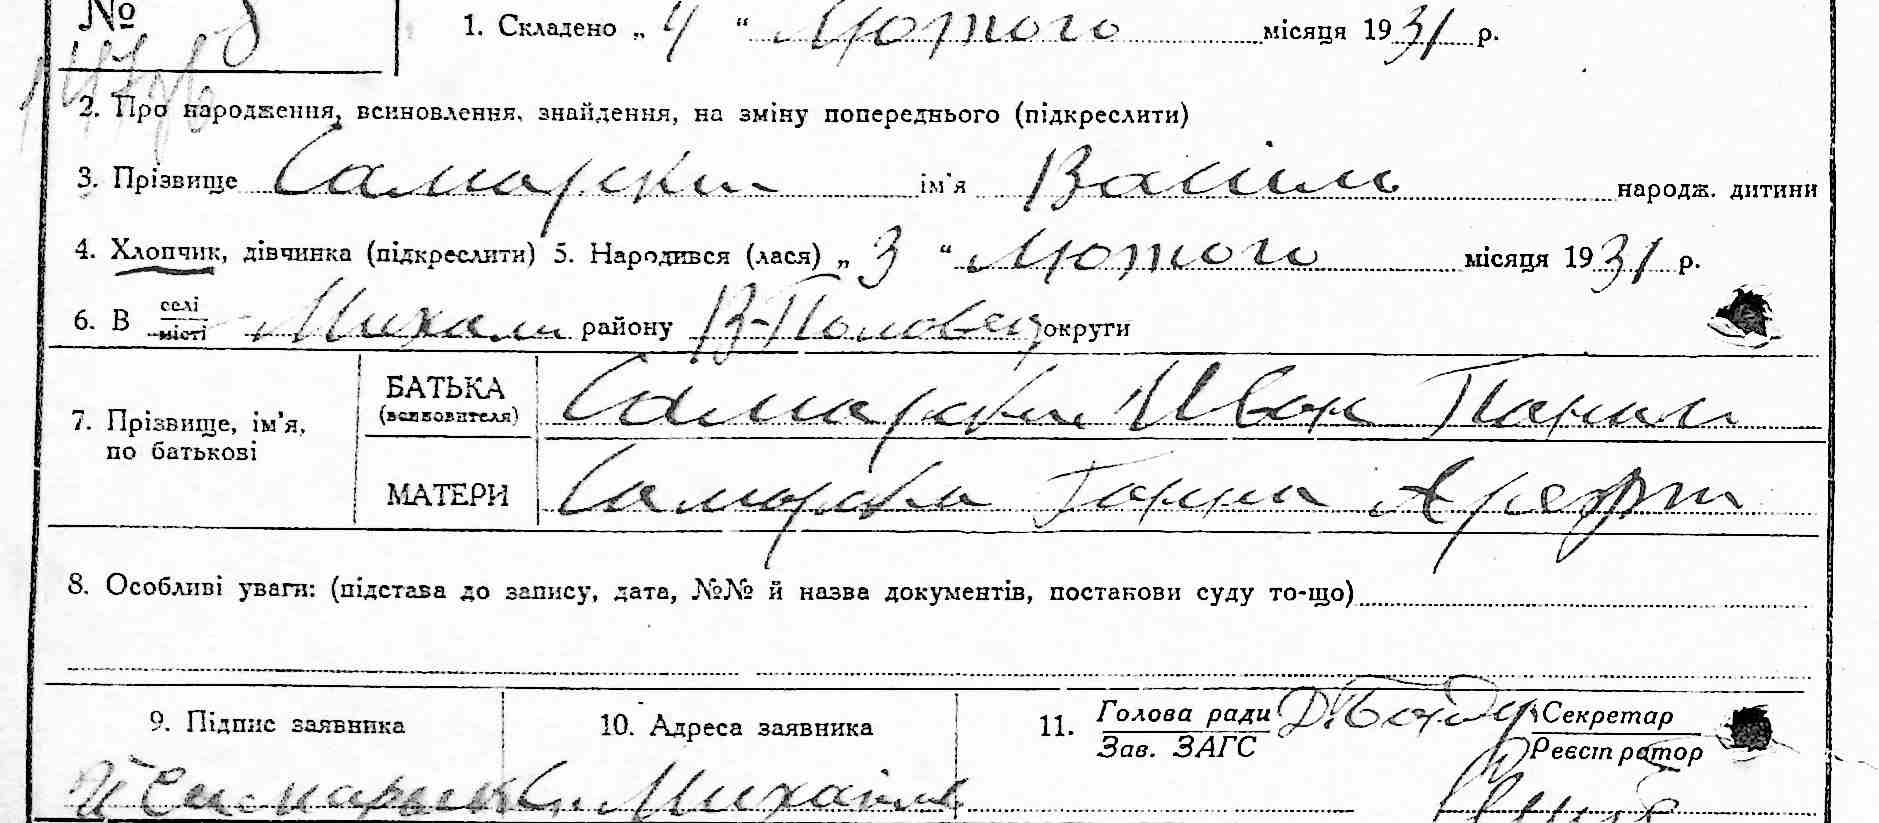 № 8 1. Складено „ 4 “ Лютого місяця 1931 р.
2. Про народження, всиновлення, знайдення, на зміну попереднього (підкреслити)
3. Прізвище Самарски ім'я Василь народж. дитини
4. Хлопчик, дівчинка (підкреслити) 5. Народився (лася) „ 3 “ Лютого місяця 1931 р.
6. В селі місті району В-Половец округи
7. Прізвище, ім'я, по батькові
БАТЬКА (всиновителя) Самарски Иван
МАТЕРИ Самарска Ганна
8. Особливі уваги: (підстава до запису, дата, №№ й назва документів, постанови суду то-що)
9. Підпис заявника 10. Адреса заявника 11. Голова ради Зав. ЗАГС Секретар Реєстратор